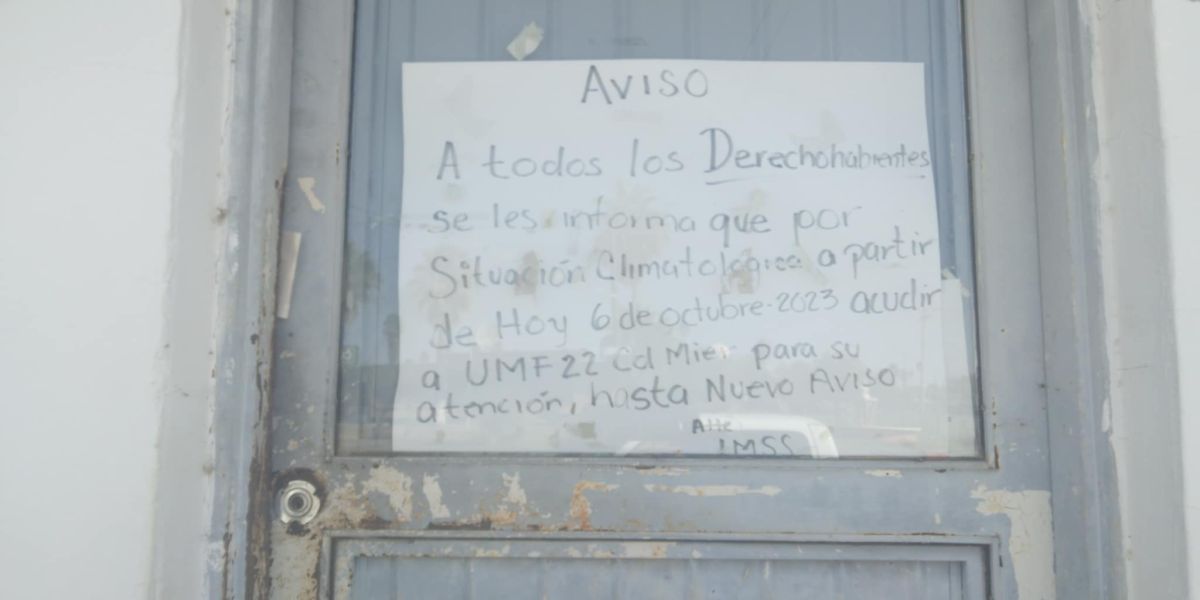 AVISO
A todos los Derechohabientes
se les informa que por
Situación Climatológica a partir
de Hoy 6 de octubre-2023 acudir
a UMF 22 Cd Mier para su
atención, hasta Nuevo Aviso
Atte
IMSS